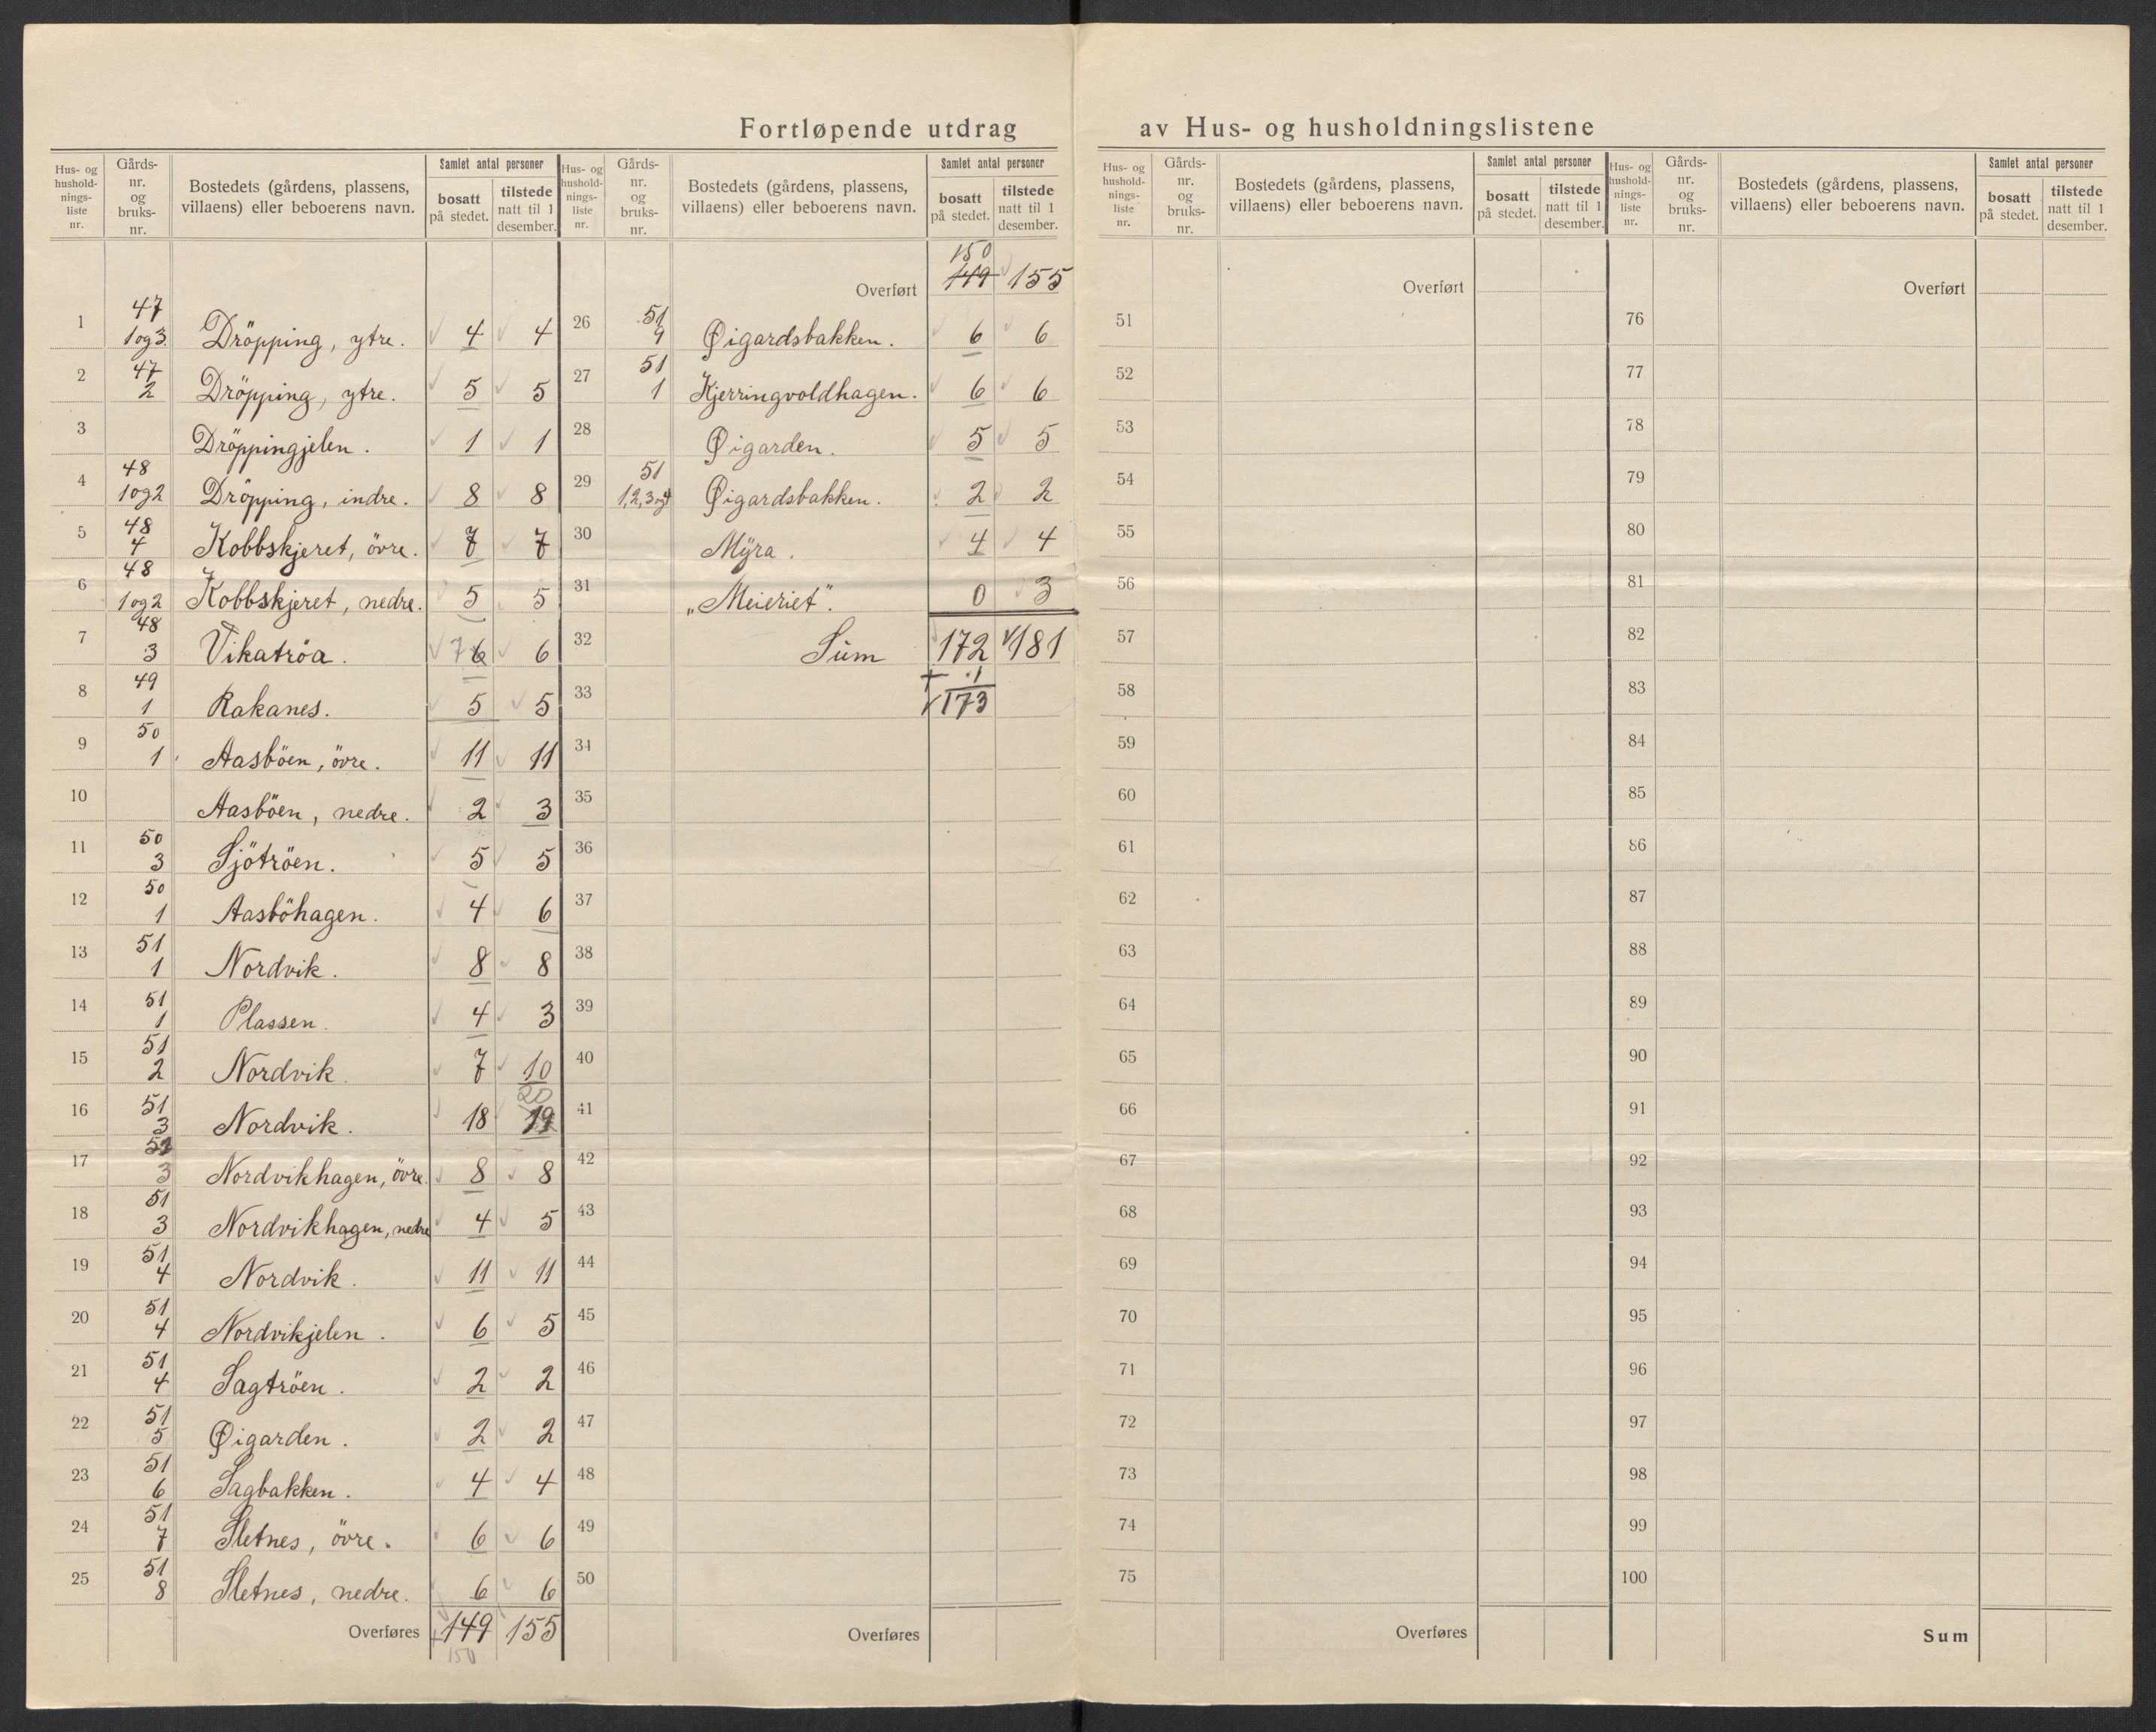 Fortløpende utdrag av Hus- og husholdningslistene
Hus- og husholdnings-liste nr. | Gårds-nr. og bruks-nr. | Bostedets (gårdens, plassens, villaens) eller beboerens navn. | Samlet antal personer | bosatt på stedet. | tilstede natt til 1 desember.
1 | 47 1og3. | Dröpping, ytre. | 4 | 4
2 | 47 2 | Dröpping, ytre. | 5 | 5
3 | Dröppingjelen. | 1 | 1
4 | 48 1og2 | Dröpping, indre. | 8 | 8
5 | 48 4 | Kobbskjeret, övre. | 7 | 7
6 | 48 1og2 | Kobbskjeret, nedre. | 5 | 5
7 | 48 3 | Vikatröa. | 7 6 | 6
8 | 49 1 | Rakanes. | 5 | 5
9 | 50 1 | Aasböen, övre. | 11 | 11
10 | Aasböen, nedre. | 2 | 3
11 | 50 3 | Sjötröen. | 5 | 5
12 | 50 1 | Aasböhagen. | 4 | 6
13 | 51 1 | Nordvik. | 8 | 8
14 | 51 1 | Plassen. | 4 | 3
15 | 51 2 | Nordvik. | 7 | 10
16 | 51 3 | Nordvik. | 18 | 20 19
17 | 51 3 | Nordvikhagen, övre. | 8 | 8
18 | 51 3 | Nordvikhagen, nedre | 4 | 5
19 | 51 4 | Nordvik. | 11 | 11
20 | 51 4 | Nordvikjelen. | 6 | 5
21 | 51 4 | Sagtröen. | 2 | 2
22 | 51 5 | Øigarden. | 2 | 2
23 | 51 6 | Sagbakken. | 4 | 4
24 | 51 7 | Sletnes, övre. | 6 | 6
25 | 51 8 | Sletnes, nedre. | 6 | 6
Overføres | 149 | 155
150
Hus- og husholdnings-liste nr. | Gårds-nr. og bruks-nr. | Bostedets (gårdens, plassens, villaens) eller beboerens navn. | Samlet antal personer | bosatt på stedet. | tilstede natt til 1 desember.
150
Overført | 149 | 155
26 | 51 9 | Øigardsbakken. | 6 | 6
27 | 51 1 | Kjerringvoldhagen. | 6 | 6
28 | Øigarden. | 5 | 5
29 | 51 1,2,3og4 | Øigardsbakken. | 2 | 2
30 | Mÿra. | 4 | 4
31 | „Meieriet". | 0 | 3
32 | Sum | 172 | 181
+ 1
33 | 173
34
35
36
37
38
39
40
41
42
43
44
45
46
47
48
49
50
Overføres
Hus- og husholdnings-liste nr. | Gårds-nr. og bruks-nr. | Bostedets (gårdens, plassens, villaens) eller beboerens navn. | Samlet antal personer | bosatt på stedet. | tilstede natt til 1 desember.
Overført
51
52
53
54
55
56
57
58
59
60
61
62
63
64
65
66
67
68
69
70
71
72
73
74
75
Overføres
Hus- og husholdnings-liste nr. | Gårds-nr. og bruks-nr. | Bostedets (gårdens, plassens, villaens) eller beboerens navn. | Samlet antal personer | bosatt på stedet. | tilstede natt til 1 desember.
Overført
76
77
78
79
80
81
82
83
84
85
86
87
88
89
90
91
92
93
94
95
96
97
98
99
100
Sum